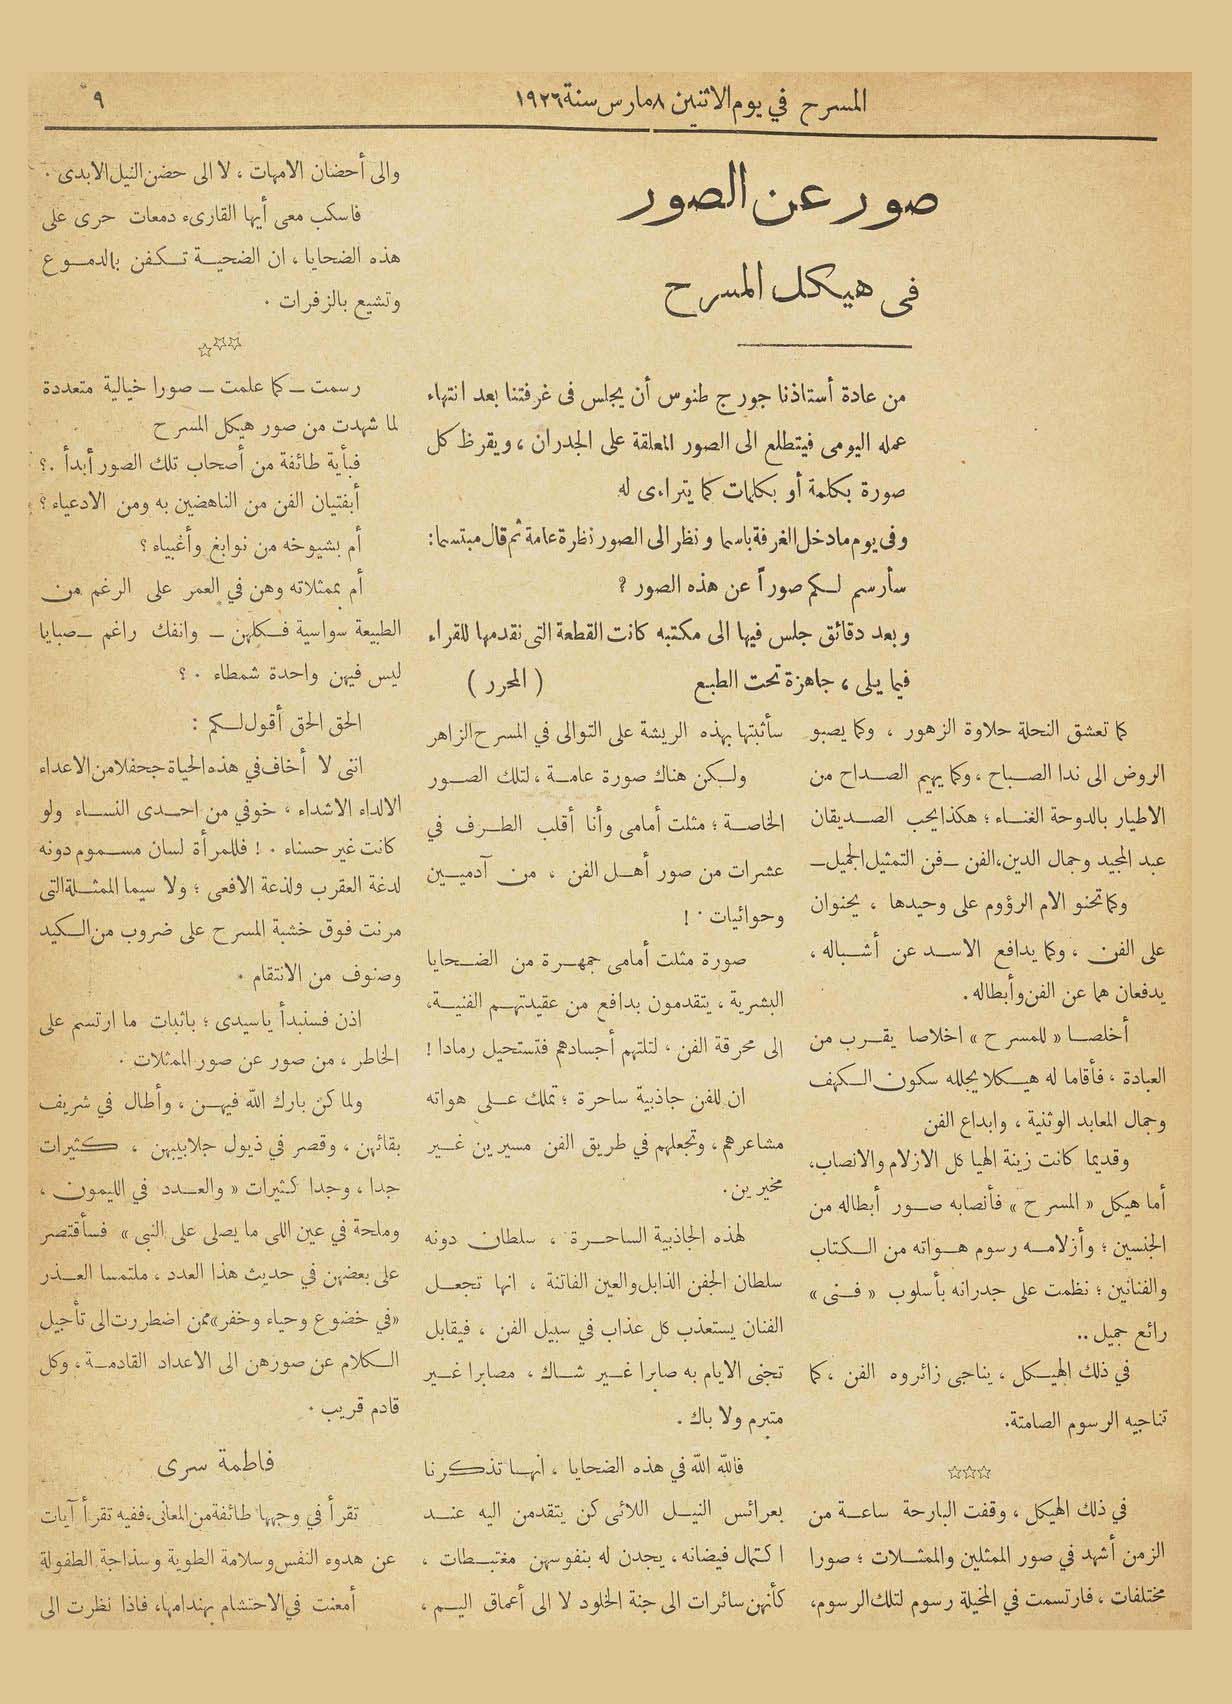 المسرح في يوم الاثنين ٨ مارس سنة ١٩٢٦
٩
صور عن الصور
في هيكل المسرح
من عادة أستاذنا جورج طنوس أن يجلس فى غرفتنا بعد انتهاء
عمله اليومى فيتطلع الى الصور المعلقة على الجدران ، ويقرظ كل
صورة بكلمة أو بكلمات كما يتراءى له
وفى يوم ما دخل الغرفة باسما ونظر الى الصور نظرة عامة ثم قال مبتسما :
سأرسم لكم صوراً عن هذه الصور ?
وبعد دقائق جلس فيها الى مكتبه كانت القطعة التى نقدمها للقراء
فيما يلى ، جاهزة تحت الطبع ( المحرر )
كما تعشق النحلة حلاوة الزهور ، وكما يصبو
الروض الى ندا الصباح ، وكما يهيم الصداح من
الاطيار بالدوحة الغناء ؛ هكذا يحب الصديقان
عبد المجيد وجمال الدين، الفن – فن التمثيل الجميل –
وكما تحنو الام الرؤوم على وحيدها ، يحنوان
على الفن ، وكما يدافع الاسد عن أشباله ،
يدفعان هما عن الفن وأبطاله .
أخلصا « للمسرح » اخلاصا يقرب من
العبادة ، فأقاما له هيكلا يجلله سكون الكهف
وجمال المعابد الوثنية ، وابداع الفن
وقديما كانت زينة الهياكل الازلام والانصاب ،
أما هيكل « المسرح » فأنصابه صور أبطاله من
الجنسين ؛ وأزلامه رسوم هواته من الكتاب
والفنانين ؛ نظمت على جدرانه بأسلوب « فنى »
رائع جميل ..
في ذلك الهيكل ، يناجى زائروه الفن ، كما
تناجيه الرسوم الصامتة.
☆☆☆
في ذلك الهيكل ، وقفت البارحة ساعة من
الزمن أشهد في صور الممثلين والممثلات ؛ صورا
مختلفات ، فارتسمت في المخيلة رسوم لتلك الرسوم،
سأثبتها بهذه الريشة على التوالى في المسرح الزاهر
ولكن هناك صورة عامة ، لتلك الصور
الخاصة ؛ مثلت أمامى وأنا أقلب الطرف في
عشرات من صور أهل الفن ، من آدميين
وحوائيات . !
صورة مثلت أمامى جمهرة من الضحايا
البشرية ، يتقدمون بدافع من عقيدتهم الفنية،
إلى محرقة الفن ، لتلتهم أجسادهم فتستحيل رمادا !
ان للفن جاذبية ساحرة ؛ تملك على هواته
مشاعرهم ، وتجعلهم في طريق الفن مسيرين غير
مخيرين .
لهذه الجاذبية الساحرة ، سلطان دونه
سلطان الجفن الذابل والعين الفاتنة ، انها تجعل
الفنان يستعذب كل عذاب في سبيل الفن ، فيقابل
تجنى الايام به صابرا غير شاك ، مصابرا غير
متبرم ولا باك .
فالله الله في هذه الضحايا ، انها تذكرنا
بعرائس النيل اللائى كن يتقدمن اليه عند
اكتمال فيضانه ، يجدن له بنفوسهن مغتبطات ،
كأنهن سائرات الى جنة الخلود لا الى أعماق اليم ،
والى أحضان الامهات ، لا الى حضن النيل الابدى .
فاسكب معى أيها القارىء دمعات حرى على
هذه الضحايا ، ان الضحية تكفن بالدموع
وتشيع بالزفرات .
☆☆☆
رسمت – كما علمت – صورا خيالية متعددة
لما شهدت من صور هيكل المسرح
فبأية طائفة من أصحاب تلك الصور أبدأ .؟
أبفتيان الفن من الناهضين به ومن الادعياء ؟
أم بشيوخه من نوابغ وأغبياء ؟
أم بممثلاته وهن في العمر على الرغم من
الطبيعة سواسية فكلهن – وانفك راغم – صبايا
ليس فيهن واحدة شمطاء . ؟
الحق الحق أقول لكم :
اننى لا أخاف في هذه الحياة جحفلا من الاعداء
الالداء الاشداء ، خوفي من احدى النساء ولو
كانت غير حسناء . ! فللمرأة لسان مسموم دونه
لدغة العقرب ولذعة الافعى ؛ ولا سيما الممثلة التى
مرنت فوق خشبة المسرح على ضروب من الكيد
وصنوف من الانتقام .
اذن فسنبدأ ياسيدى ؛ باثبات ما ارتسم على
الخاطر ، من صور عن صور الممثلات .
ولما كن بارك الله فيهن ، وأطال في شريف
بقائهن ، وقصر في ذيول جلابيبهن ، كثيرات
جدا ، وجدا كثيرات « والعدد في الليمون ،
وملحة في عين اللى ما يصلى على النبى » فسأقتصر
على بعضهن في حديث هذا العدد ، ملتمسا العذر
«في خضوع وحياء وخفر» ممن اضطررت الى تأجيل
الكلام عن صورهن الى الاعداد القادمة ، وكل
قادم قريب .
فاطمة سرى
تقرأ في وجهها طائفة من المعانى ، ففيه تقرأ آيات
عن هدوء النفس وسلامة الطوية وسذاجة الطفولة
أمعنت في الاحتشام بهندامها ، فاذا نظرت الى